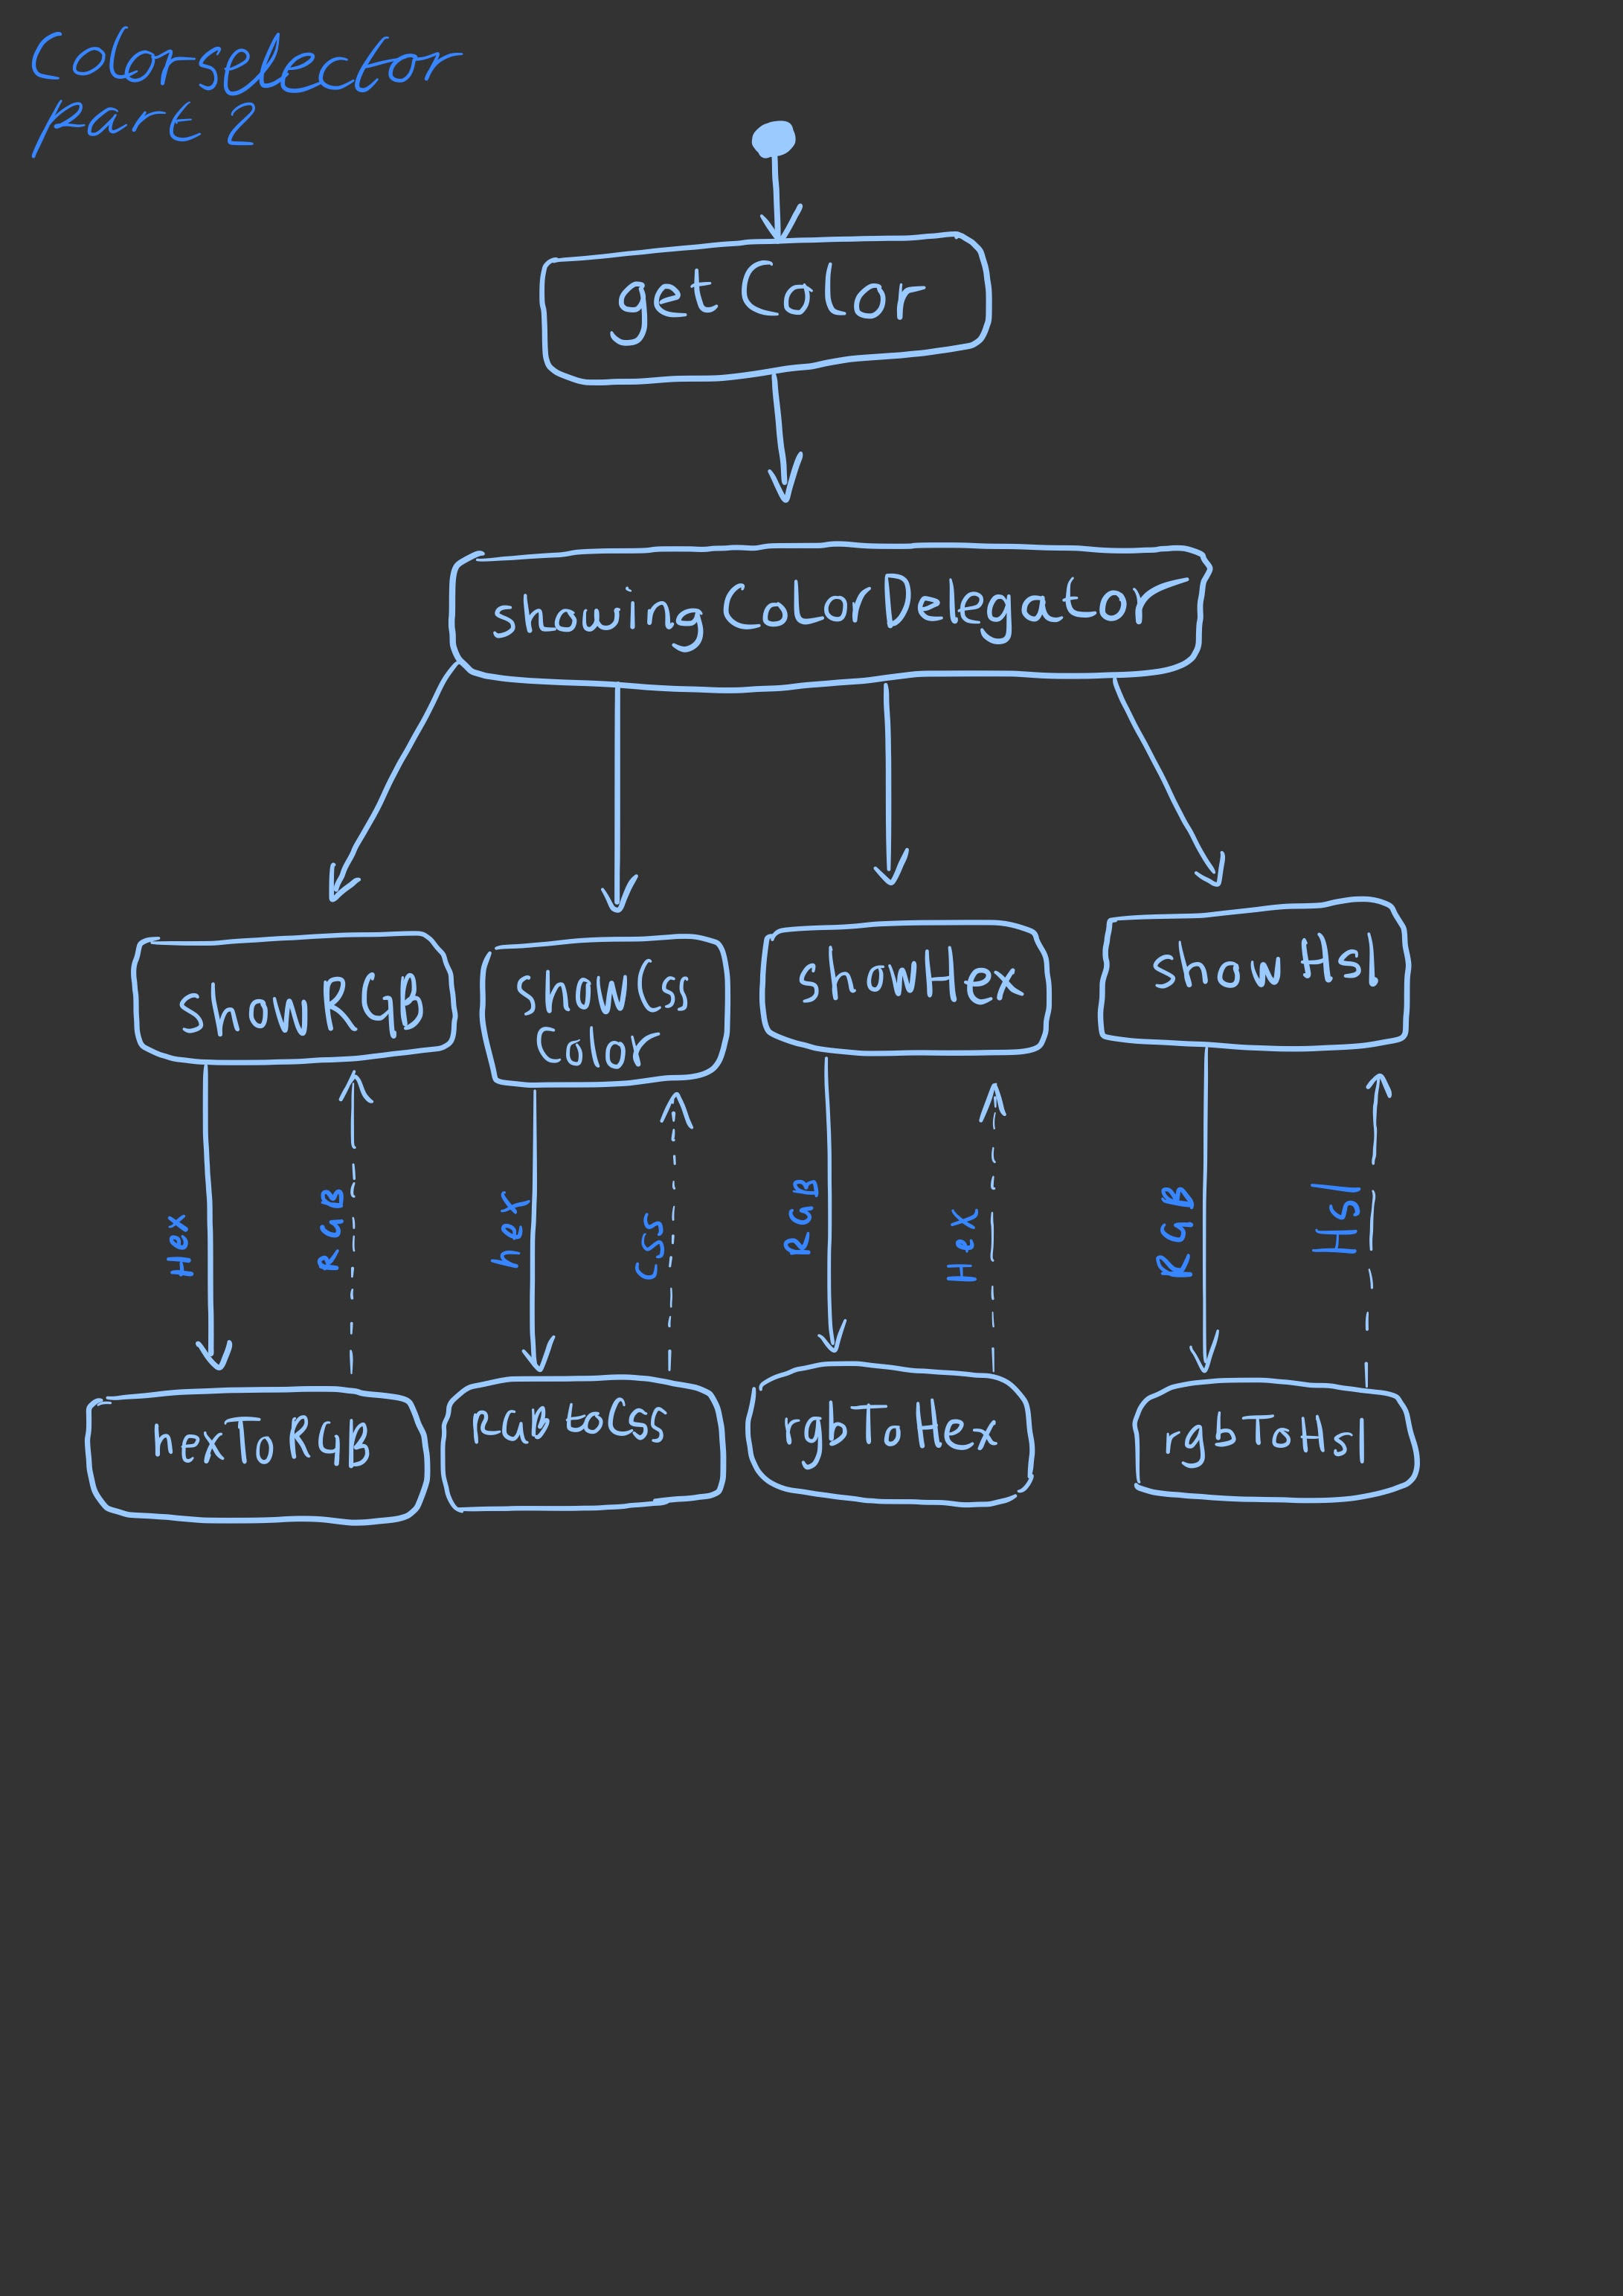 Colorselector
part 2
getColor
showingColorDelegator
showRGB
showCss
Color
showHex
showHsl
Hex
RGB
hex
Css
RGB
Hex
RGB
Hsl
hexToRGB
toCss
rgbToHex
rgbToHsl